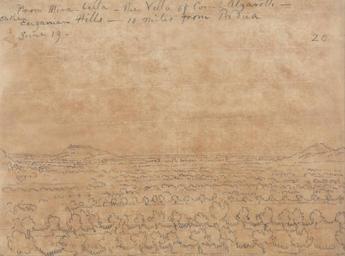 From Mira Cella - the Villa of Con Algarotti -
Euganean Hills - 10 miles from Padua
June 19 -
20